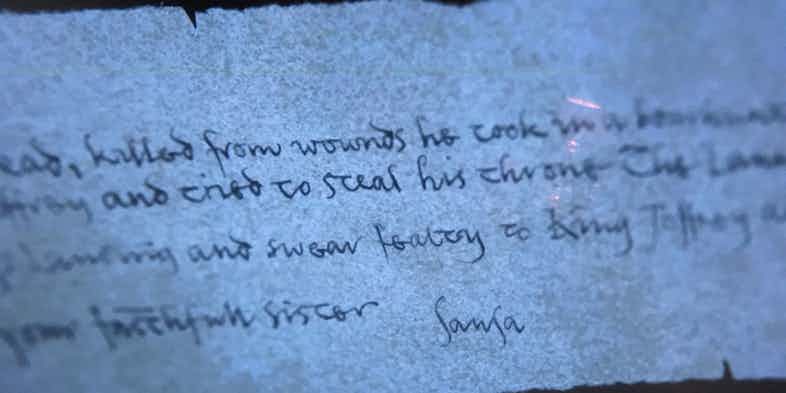 killed from wounds he took in a
and tried to steal his throne The
and swear fealty to King Joffrey
your faithfull sister Sansa